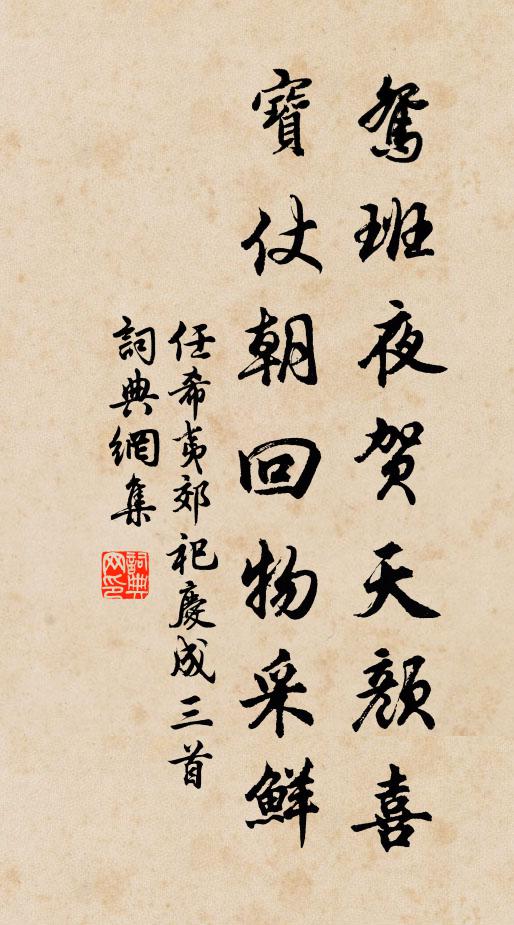 鴛班夜賀天顏喜
寶仗朝回物采鮮
任希夷郊祀慶成三首
詞典網集
詞典
网印